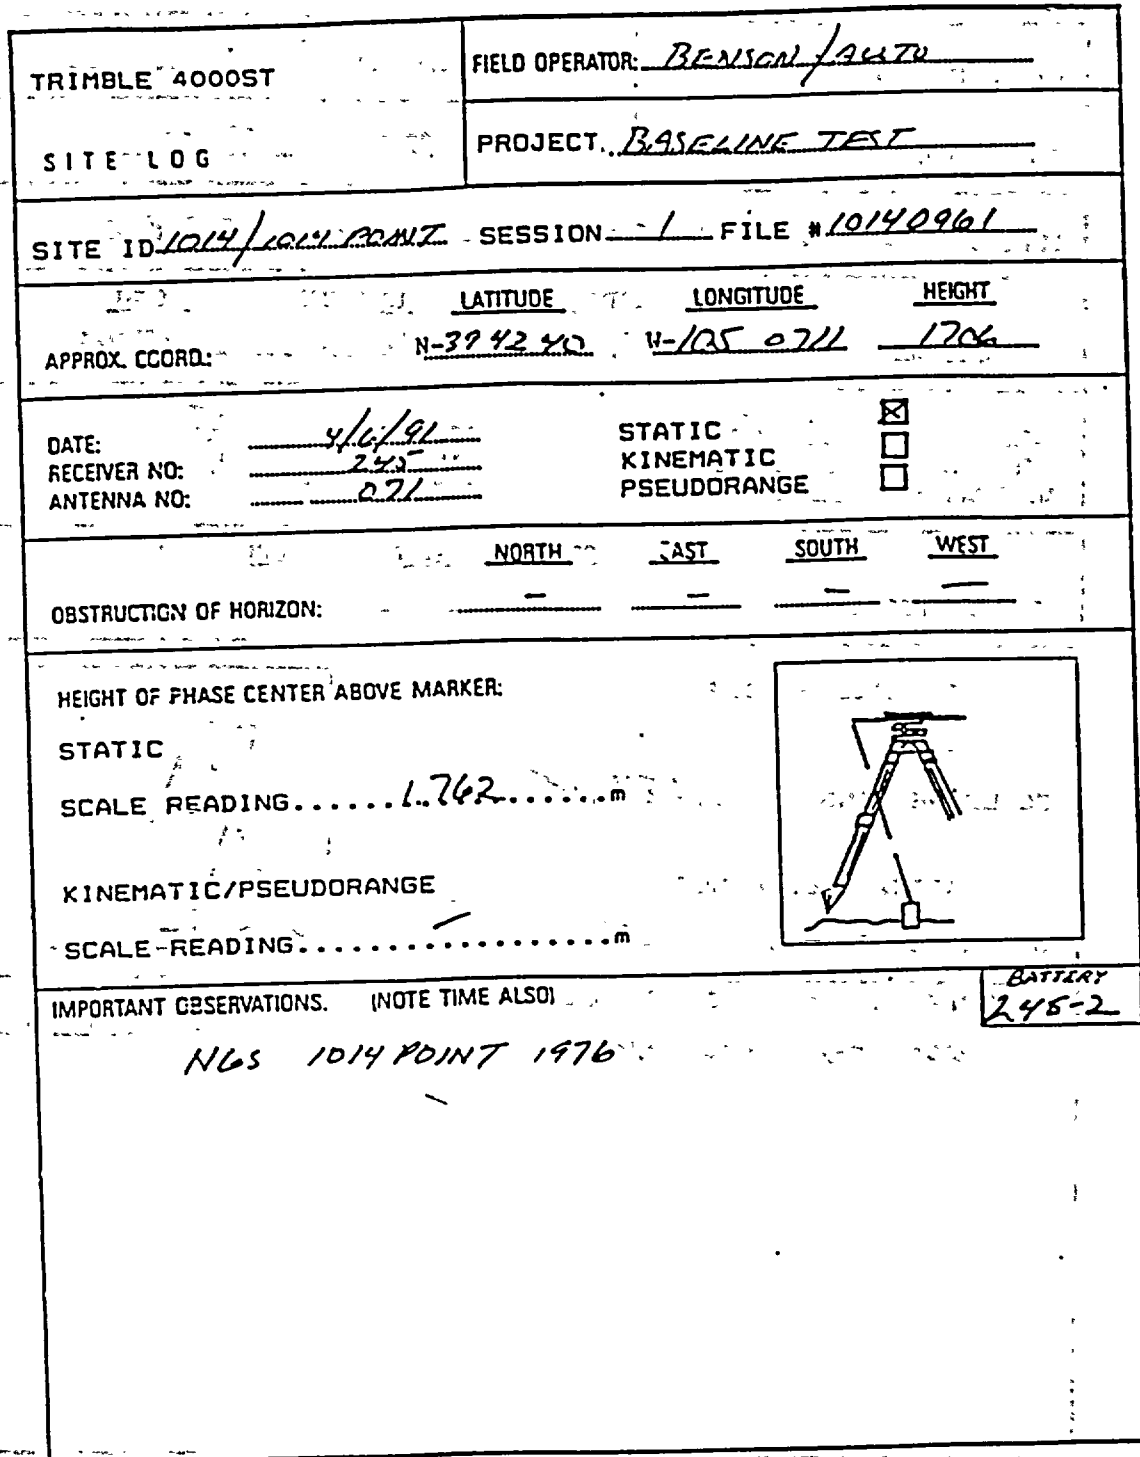 TRIMBLE 4000ST
FIELD OPERATOR: BENSON/AUTO
SITE LOG
PROJECT. BASELINE TEST
SITE ID 1014/1014 POINT SESSION 1 FILE # 10140961
LATITUDE LONGITUDE HEIGHT
APPROX. COORD.: N-39 42 40 W-105 0711 1706
DATE: 4/6/91 STATIC ☒
RECEIVER NO: 245 KINEMATIC ☐
ANTENNA NO: 071 PSEUDORANGE ☐
NORTH EAST SOUTH WEST
OBSTRUCTION OF HORIZON: – – – –
HEIGHT OF PHASE CENTER ABOVE MARKER:
STATIC
SCALE READING......1.762.......m
KINEMATIC/PSEUDORANGE
SCALE READING..................m
BATTERY
IMPORTANT OBSERVATIONS. (NOTE TIME ALSO) 245-2
NGS 1014 POINT 1976